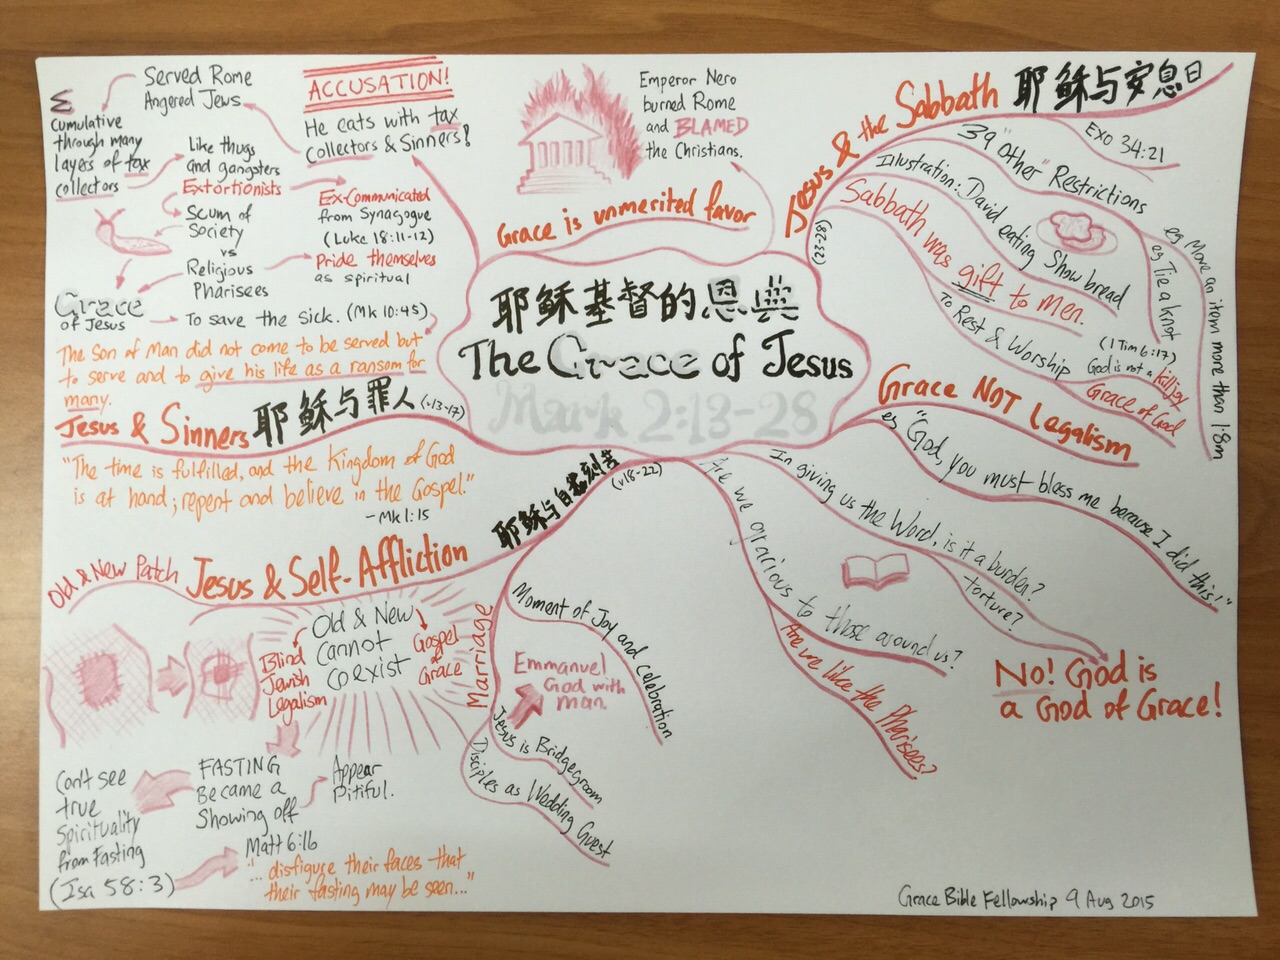 耶稣基督的恩典
The Grace of Jesus
Mark 2:13-28
Grace is unmerited favor
Emperor Nero
burned Rome
and BLAMED
the Christians.
Jesus & the Sabbath 耶稣与安息日
(23-28)
Exo 34:21
39 "Other" Restrictions
eg Move an item more than 1.8m
eg Tie a knot
Illustration: David eating Show bread
Sabbath was gift to men.
To Rest & Worship
(1 Tim 6:17)
God is not a killjoy
Grace of God
Grace NOT Legalism
eg "God, you must bless me because I did this!"
In giving us the Word, is it a burden?
torture?
NO! God is
a God of Grace!
Are we gracious to those around us?
Are we like the Pharisees?
耶稣与自苦刻苦
(v18-22)
Jesus & Self-Affliction
Marriage
Moment of Joy and celebration
Emmanuel
God with
man
Jesus is Bridgegroom
Disciples as Wedding Guest
Old & New Patch
Old & New
Cannot
Coexist
Blind
Jewish
Legalism
Gospel
of
Grace
FASTING
Became a
Showing off
Appear
Pitiful.
Can't see
true
Spirituality
from Fasting
(Isa 58:3)
Matt 6:16
"... disfigure their faces that
their fasting may be seen..."
Jesus & Sinners 耶稣与罪人 (v13-17)
"The time is fulfilled, and the Kingdom of God
is at hand; repent and believe in the Gospel."
- Mk 1:15
ACCUSATION!
He eats with tax
Collectors & Sinners!
Served Rome
Angered Jews
Σ
Cumulative
through many
layers of tax
collectors
Like thugs
and gangsters
Extortionists
Ex-Communicated
from Synagogue
(Luke 18:11-12)
Scum of
Society
vs
Religious
Pharisees
Pride themselves
as spiritual
Grace
of Jesus
To save the sick. (Mk 10:45)
The Son of Man did not come to be served but
to serve and to give his life as a ransom for
many.
Grace Bible Fellowship 9 Aug 2015